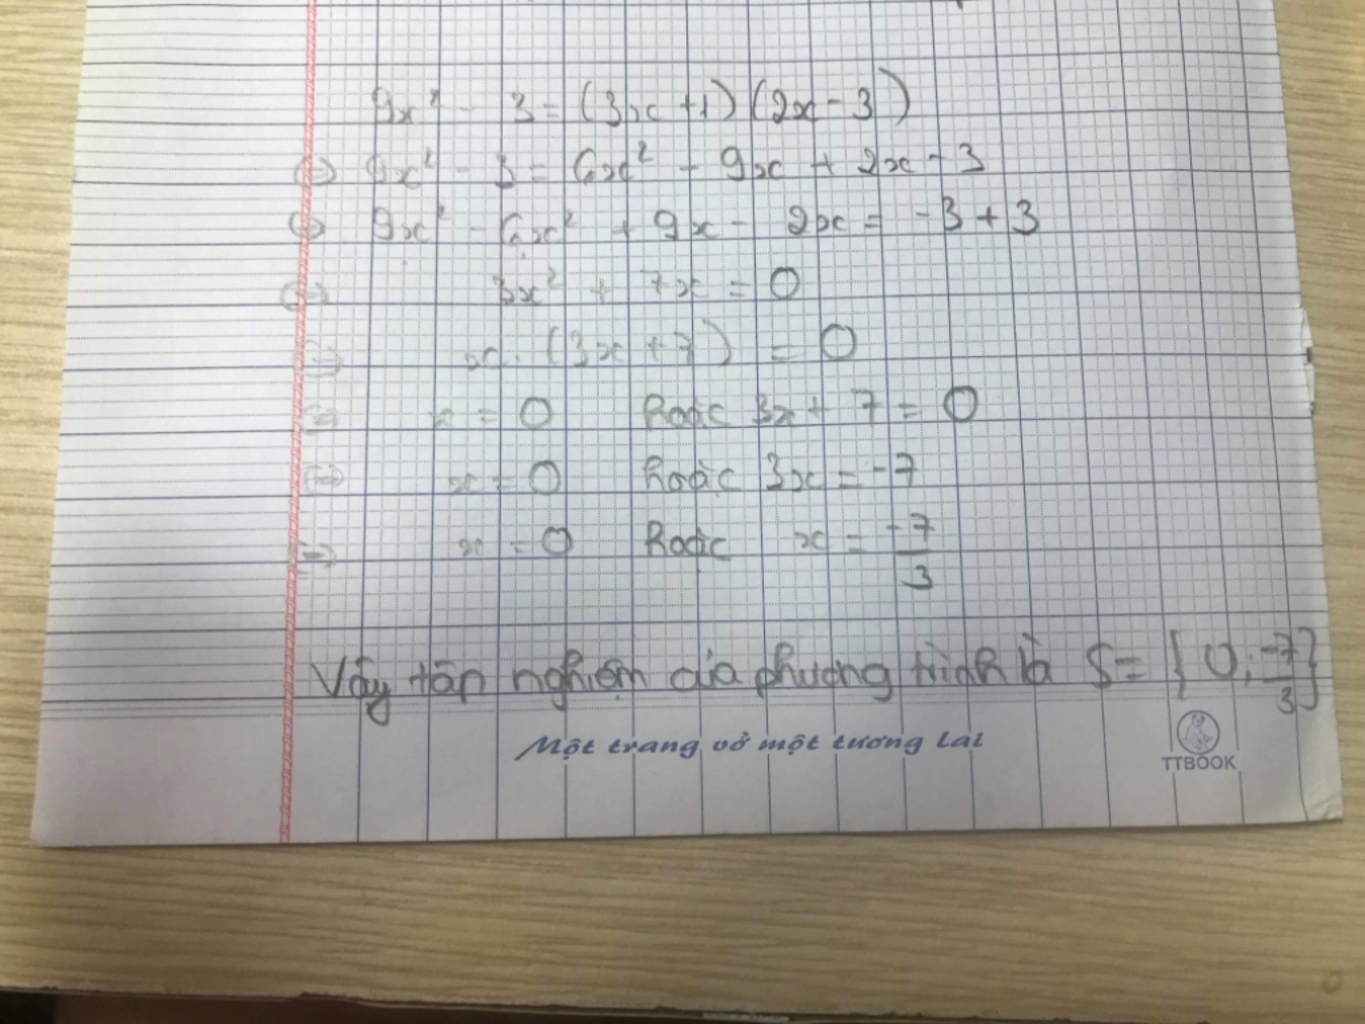 9x² - 3 = (3x + 1)(2x - 3)
⇔ 9x² - 3 = 6x² - 9x + 2x - 3
⇔ 9x² - 6x² + 9x - 2x = -3 + 3
⇔ 3x² + 7x = 0
⇔ x. (3x + 7) = 0
⇔ x = 0 hoặc 3x + 7 = 0
⇔ x = 0 hoặc 3x = -7
⇔ x = 0 hoặc x = -7/3
Vậy tập nghiệm của phương trình là S = {0; -7/3}
Một trang vở một tương lai
TTBOOK